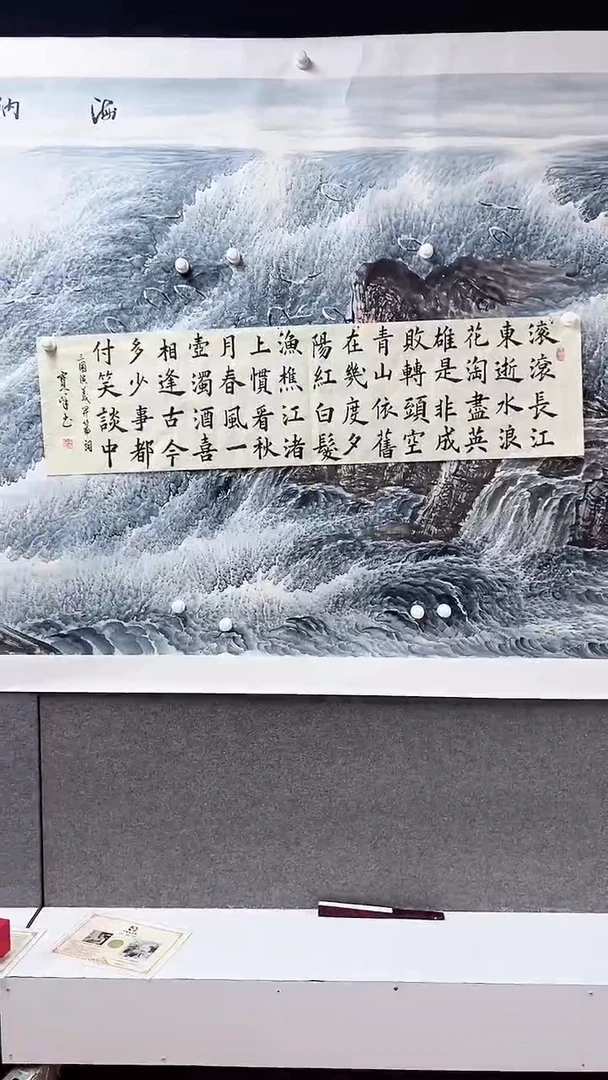 海納
滾滾長江
東逝水浪
花淘盡英
雄是非成
敗轉頭空
青山依舊
在幾度夕
陽紅白髮
漁樵江渚
上慣看秋
月春風一
壺濁酒喜
相逢古今
多少事都
付笑談中
三國演義開篇詞